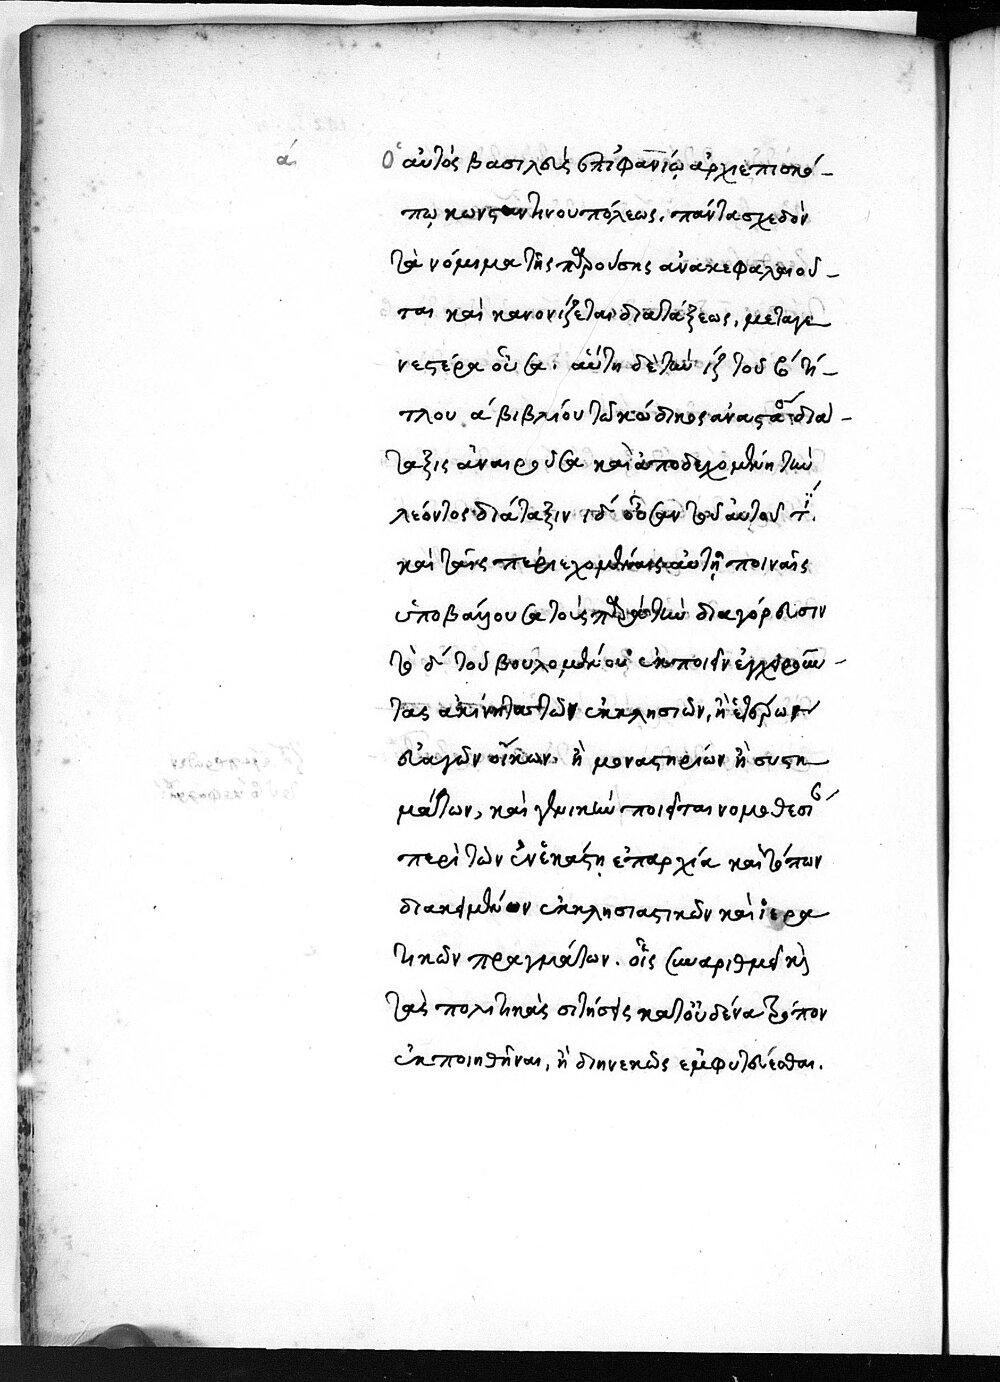 ά
Ὁ αὐτὸς βασιλεὺς ἐπιφανίῳ ἀρχιεπισκό-
πῳ κωνσταντινουπόλεως. πάντα σχεδὸν
τὰ νόμιμα τῆς παρούσης ἀνακεφαλαιοῦ-
ται καὶ κανονίζεται διατάξεως, μεταγε
νεστέρα οὖσα. αὕτη δὲ τὴν ιζ τοῦ β΄ τί-
τλου α΄ βιβλίου τοῦ κώδικος ἀναστα διά-
ταξις ἀναιροῦσα καὶ ἀποδεχομένη τὴν
λέοντος διάταξιν ιδ΄ οὖσαν τοῦ αὐτοῦ τι.
καὶ ταῖς περιεχομέναις αὐτῇ ποιναῖς
ὑποβάλλουσα τοὺς παρὰ τὴν διαγόρευσιν
τοῦ δ΄ τοῦ βουλομένου ἐκποιεῖν ἐγχειροῦν-
τας ἀκίνητα τῶν ἐκκλησιῶν, ἢ ἑτέρων
εὐαγῶν οἴκων. ἢ μοναστηρίων ἢ συστη
μάτων, καὶ γενικὴν ποιεῖται νομοθεσί
περὶ τῶν ἐν ἑκάστῃ ἐπαρχίᾳ καὶ τόπων
διακειμένων ἐκκλησιαστικῶν καὶ ἱερα
τικῶν πραγμάτων. οἷς συναριθμεῖ κ
τὰς πολιτικὰς σιτήσεις κατ' οὐδένα τρόπον
ἐκποιηθῆναι, ἢ διηνεκῶς ἐμφυτεύεσθαι.